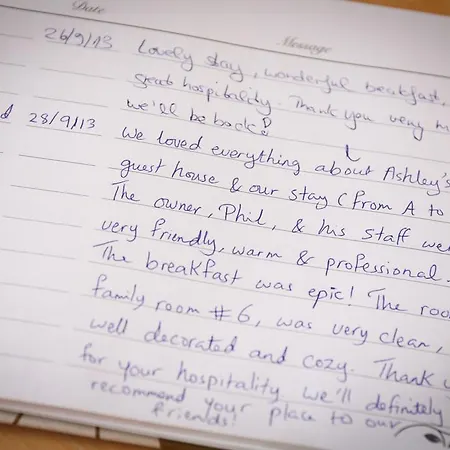 Date Message
26/9/13 Lovely stay, wonderful breakfast,
great hospitality. Thank you very
we'll be back!
d 28/9/13 We loved everything about Ashley's
guest house & our stay (from A to
The owner, Phil, & his staff
very friendly, warm & professional.
The breakfast was epic! The
family room #6, was very clean,
well decorated and cozy. Thank
for your hospitality we'll definitely
recommend your place to our
friends!